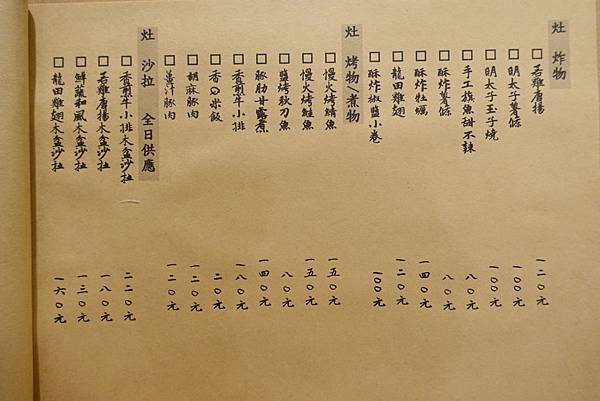 灶 炸物
□ 若雞唐揚 一二〇元
□ 明太子薯條 一〇〇元
□ 明太子玉子燒 一〇〇元
□ 手工旗魚甜不辣 八〇元
□ 酥炸薯條 八〇元
□ 酥炸牡蠣 一四〇元
□ 龍田雞翅 一二〇元
□ 酥炸椒鹽小卷 一〇〇元
灶 烤物/煮物
□ 慢火烤鯖魚 一五〇元
□ 慢火烤鮭魚 一五〇元
□ 鹽烤秋刀魚 八〇元
□ 豚肋甘露煮 一四〇元
□ 香煎牛小排 一八〇元
□ 香Q米飯 二〇元
□ 胡麻豚肉 一二〇元
□ 薑汁豚肉 一二〇元
灶 沙拉 全日供應
□ 香煎牛小排木盆沙拉 二二〇元
□ 若雞唐揚木盆沙拉 一八〇元
□ 鮮蔬和風木盆沙拉 一三〇元
□ 龍田雞翅木盆沙拉 一六〇元